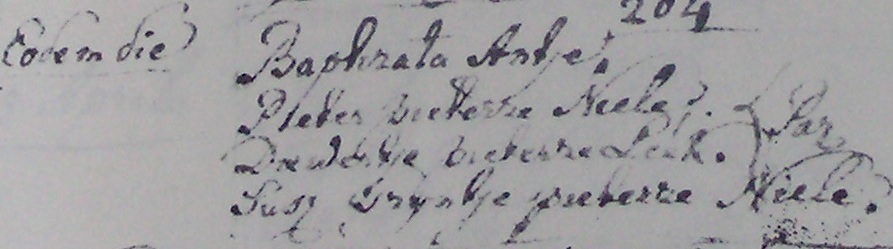 204
Eodem die Baptizata Antje,
Pieter pieterze Neele, Par,
Dieuwertje pieterze Leek.
Susc. Tryntje pieterze Neele.